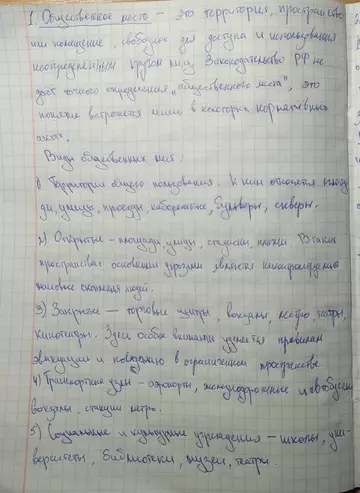 1. Общественное место – это территория, пространство
или помещение, свободное для доступа и использования
неопределенным кругом лиц. Законодательство РФ не
даёт точного определения "общественного места", это
понятие встречается лишь в некоторых нормативных
актах.
Виды общественных мест:
1) Территории общего пользования. К ним относятся площа-
ди, улицы, проезды, набережные, бульвары, скверы.
2) Открытые – площади, улицы, стадионы, пляжи. В таких
пространствах основными угрозами являются неконтролируемые
скопления людей.
3) Закрытые — торговые центры, вокзалы, метро, театры,
кинотеатры. Здесь особое внимание уделяется правилам
эвакуации и поведению в ограниченном пространстве
4) Транспортные узлы – аэропорты, железнодорожные и автобусные
вокзалы, станции метро.
5) Социальные и культурные учреждения – школы, уни-
верситеты, библиотеки, музеи, театры.